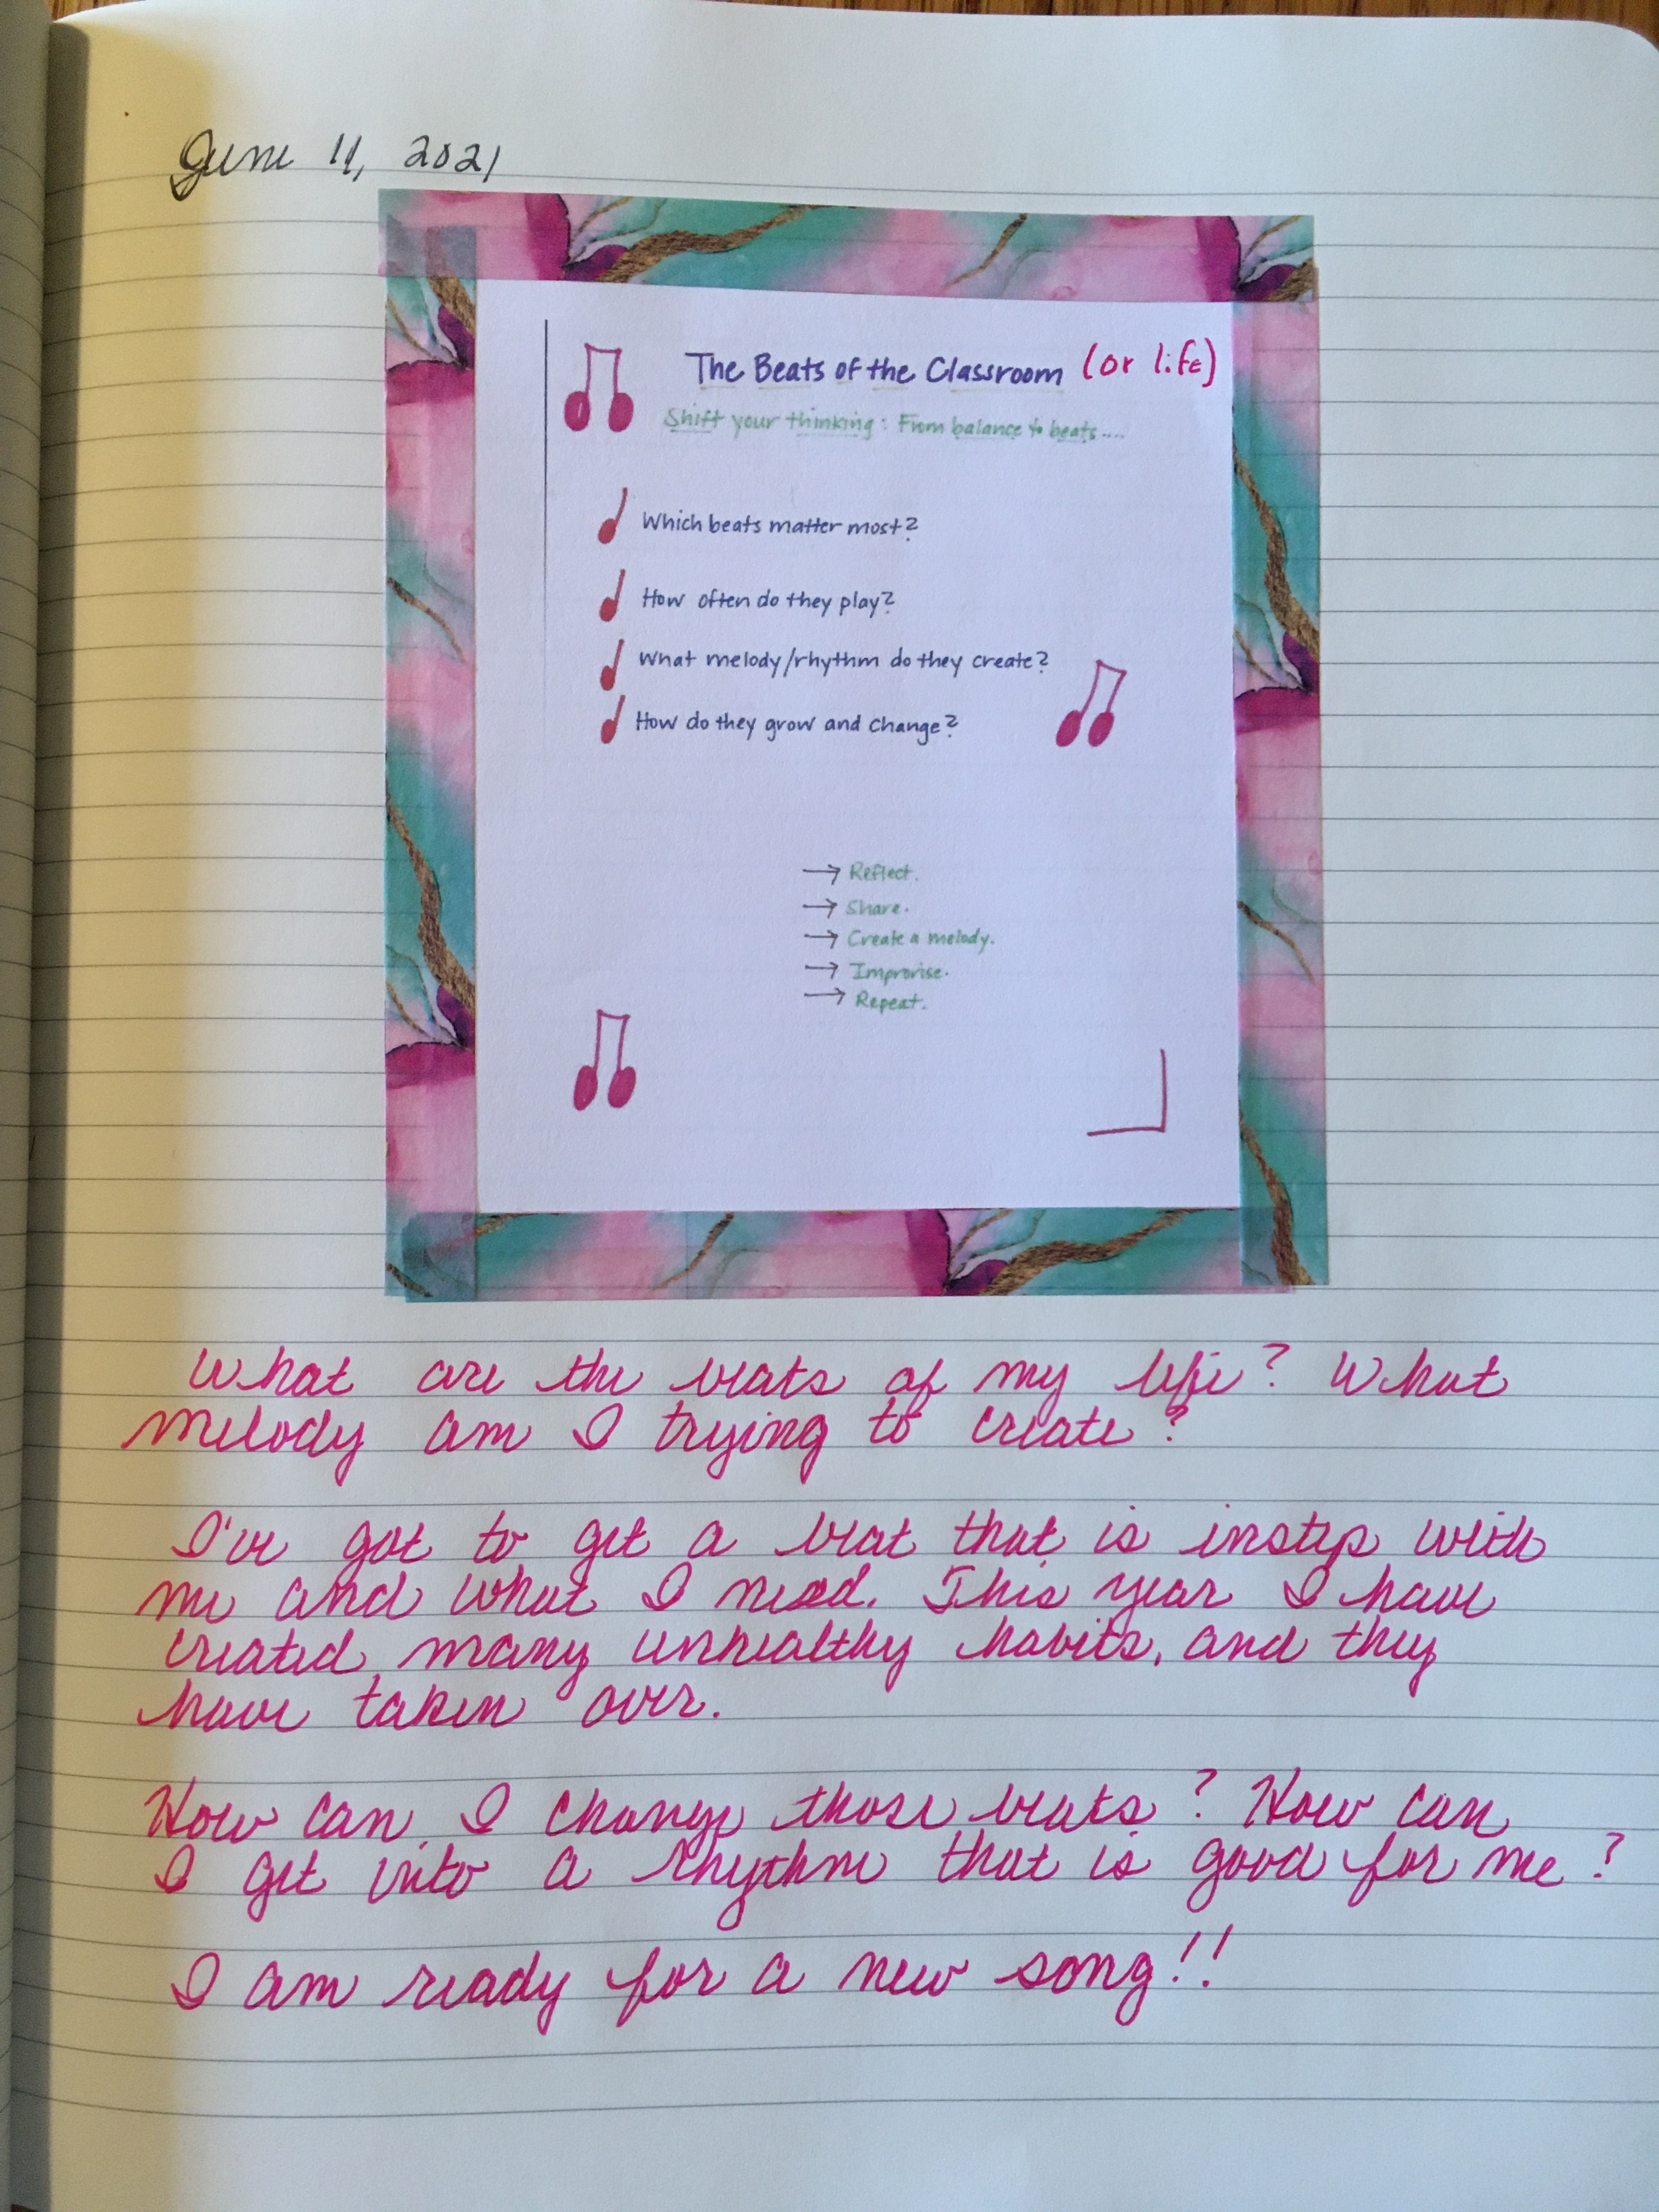 June 11, 2021
The Beats of the Classroom (or life)
Shift your thinking: From balance to beats....
Which beats matter most?
How often do they play?
What melody/rhythm do they create?
How do they grow and change?
→ Reflect.
→ Share.
→ Create a melody.
→ Improvise.
→ Repeat.
What are the beats of my life? What
melody am I trying to create?
I've got to get a beat that is instep with
me and what I need. This year I have
created many unhealthy habits, and they
have taken over.
How can I change those beats? How can
I get into a rhythm that is good for me?
I am ready for a new song!!